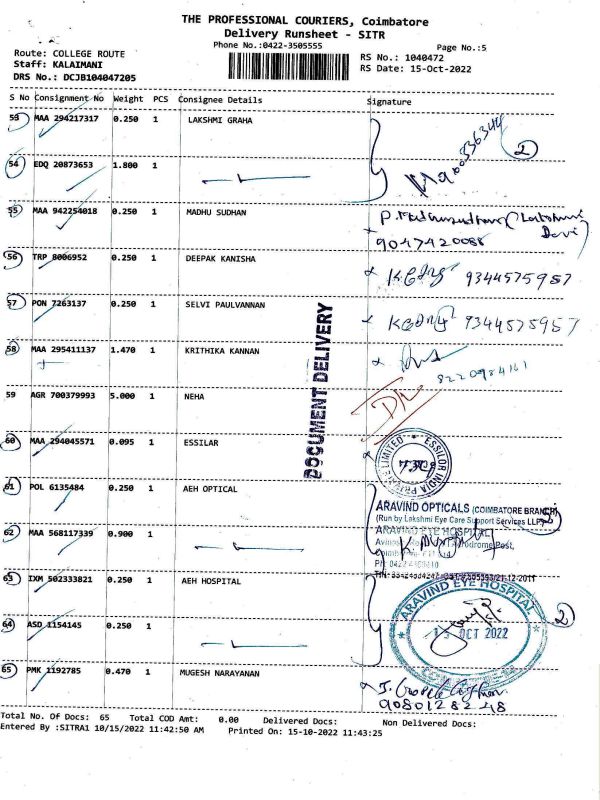 THE PROFESSIONAL COURIERS, Coimbatore
Delivery Runsheet - SITR
Phone No.:0422-3505555
Page No.:5
Route: COLLEGE ROUTE
Staff: KALAIMANI
DRS No.: DCJB104047205
RS No.: 1040472
RS Date: 15-Oct-2022
S No Consignment No Weight PCS Consignee Details Signature
53 MAA 294217317 0.250 1 LAKSHMI GRAHA
2
54 EDQ 20873653 1.800 1
55 MAA 942254018 0.250 1 MADHU SUDHAN
9047420088
56 TRP 8006952 0.250 1 DEEPAK KANISHA
9344575957
57 PON 7263137 0.250 1 SELVI PAULVANNAN
9344575957
58 MAA 295411137 1.470 1 KRITHIKA KANNAN
8220984161
59 AGR 700379993 5.000 1 NEHA
DOCUMENT DELIVERY
60 MAA 294045571 0.095 1 ESSILAR
ESSILOR INDIA PRIVATE LIMITED
61 POL 6135484 0.250 1 AEH OPTICAL
ARAVIND OPTICALS (COIMBATORE BRANCH)
(Run by Lakshmi Eye Care Support Services LLP)
ARAVIND EYE HOSPITAL
62 MAA 568117339 0.900 1
63 IXM 502333821 0.250 1 AEH HOSPITAL
ARAVIND EYE HOSPITAL
15 OCT 2022
2
64 ASD 1154145 0.250 1
65 PMK 1192785 0.470 1 MUGESH NARAYANAN
9080128248
Total No. Of Docs: 65 Total COD Amt: 0.00 Delivered Docs: Non Delivered Docs:
Entered By :SITRA1 10/15/2022 11:42:50 AM Printed On: 15-10-2022 11:43:25